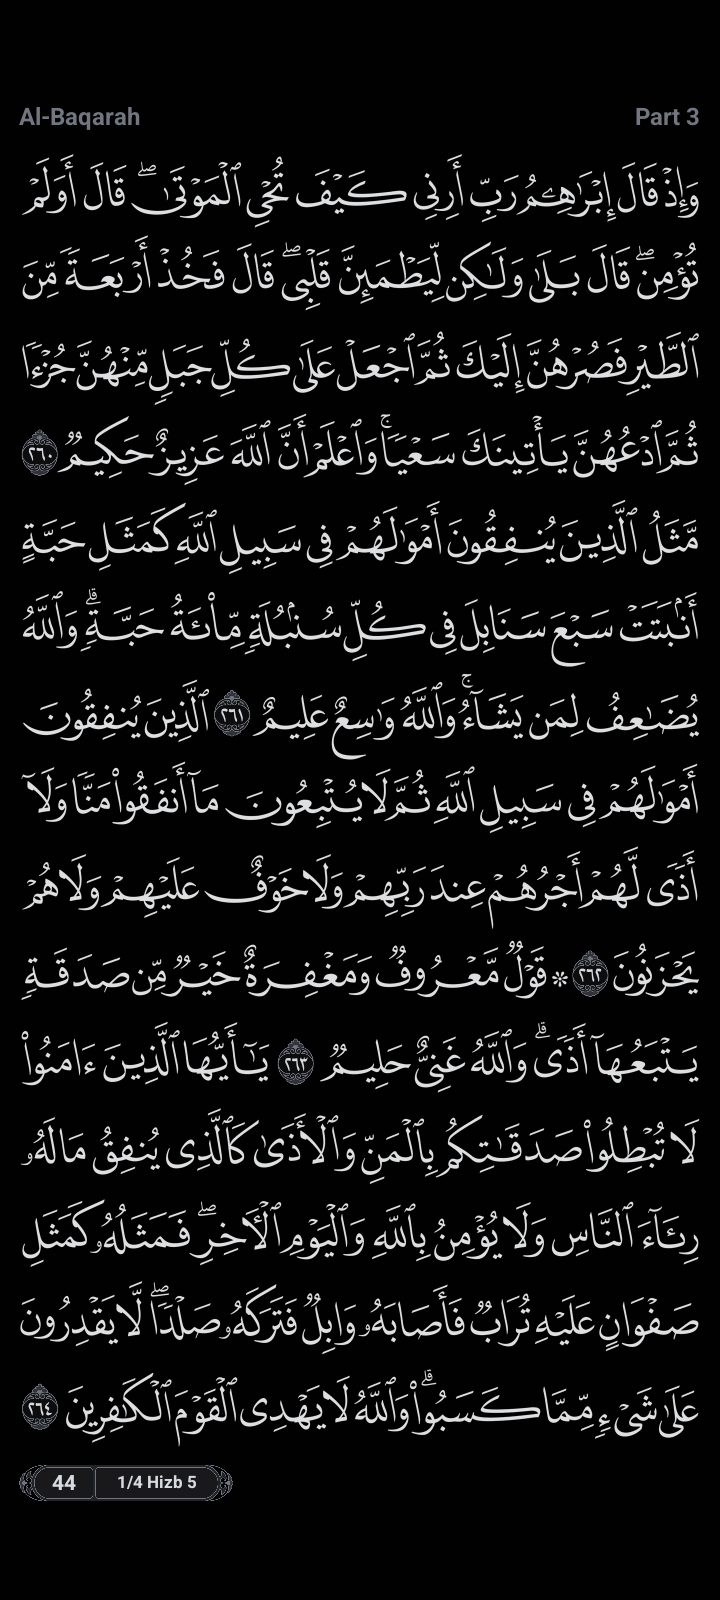 Al-Baqarah
Part 3
وَإِذْ قَالَ إِبْرَٰهِـۧمُ رَبِّ أَرِنِى كَيْفَ تُحْىِ ٱلْمَوْتَىٰ ۖ قَالَ أَوَلَمْ
تُؤْمِن ۖ قَالَ بَلَىٰ وَلَـٰكِن لِّيَطْمَئِنَّ قَلْبِى ۖ قَالَ فَخُذْ أَرْبَعَةً مِّنَ
ٱلطَّيْرِ فَصُرْهُنَّ إِلَيْكَ ثُمَّ ٱجْعَلْ عَلَىٰ كُلِّ جَبَلٍ مِّنْهُنَّ جُزْءًا
ثُمَّ ٱدْعُهُنَّ يَأْتِينَكَ سَعْيًا ۚ وَٱعْلَمْ أَنَّ ٱللَّهَ عَزِيزٌ حَكِيمٌ ٢٦٠
مَّثَلُ ٱلَّذِينَ يُنفِقُونَ أَمْوَٰلَهُمْ فِى سَبِيلِ ٱللَّهِ كَمَثَلِ حَبَّةٍ
أَنۢبَتَتْ سَبْعَ سَنَابِلَ فِى كُلِّ سُنۢبُلَةٍ مِّا۟ئَةُ حَبَّةٍ ۗ وَٱللَّهُ
يُضَـٰعِفُ لِمَن يَشَآءُ ۚ وَٱللَّهُ وَٰسِعٌ عَلِيمٌ ٢٦١ ٱلَّذِينَ يُنفِقُونَ
أَمْوَٰلَهُمْ فِى سَبِيلِ ٱللَّهِ ثُمَّ لَا يُتْبِعُونَ مَآ أَنفَقُوا۟ مَنًّا وَلَآ
أَذًى لَّهُمْ أَجْرُهُمْ عِندَ رَبِّهِمْ وَلَا خَوْفٌ عَلَيْهِمْ وَلَا هُمْ
يَحْزَنُونَ ٢٦٢ ۞ قَوْلٌ مَّعْرُوفٌ وَمَغْفِرَةٌ خَيْرٌ مِّن صَدَقَةٍ
يَتْبَعُهَآ أَذًى ۗ وَٱللَّهُ غَنِىٌّ حَلِيمٌ ٢٦٣ يَـٰٓأَيُّهَا ٱلَّذِينَ ءَامَنُوا۟
لَا تُبْطِلُوا۟ صَدَقَـٰتِكُم بِٱلْمَنِّ وَٱلْأَذَىٰ كَٱلَّذِى يُنفِقُ مَالَهُۥ
رِئَآءَ ٱلنَّاسِ وَلَا يُؤْمِنُ بِٱللَّهِ وَٱلْيَوْمِ ٱلْـَٔاخِرِ ۖ فَمَثَلُهُۥ كَمَثَلِ
صَفْوَانٍ عَلَيْهِ تُرَابٌ فَأَصَابَهُۥ وَابِلٌ فَتَرَكَهُۥ صَلْدًا ۖ لَّا يَقْدِرُونَ
عَلَىٰ شَىْءٍ مِّمَّا كَسَبُوا۟ ۗ وَٱللَّهُ لَا يَهْدِى ٱلْقَوْمَ ٱلْكَـٰفِرِينَ ٢٦٤
44
1/4 Hizb 5